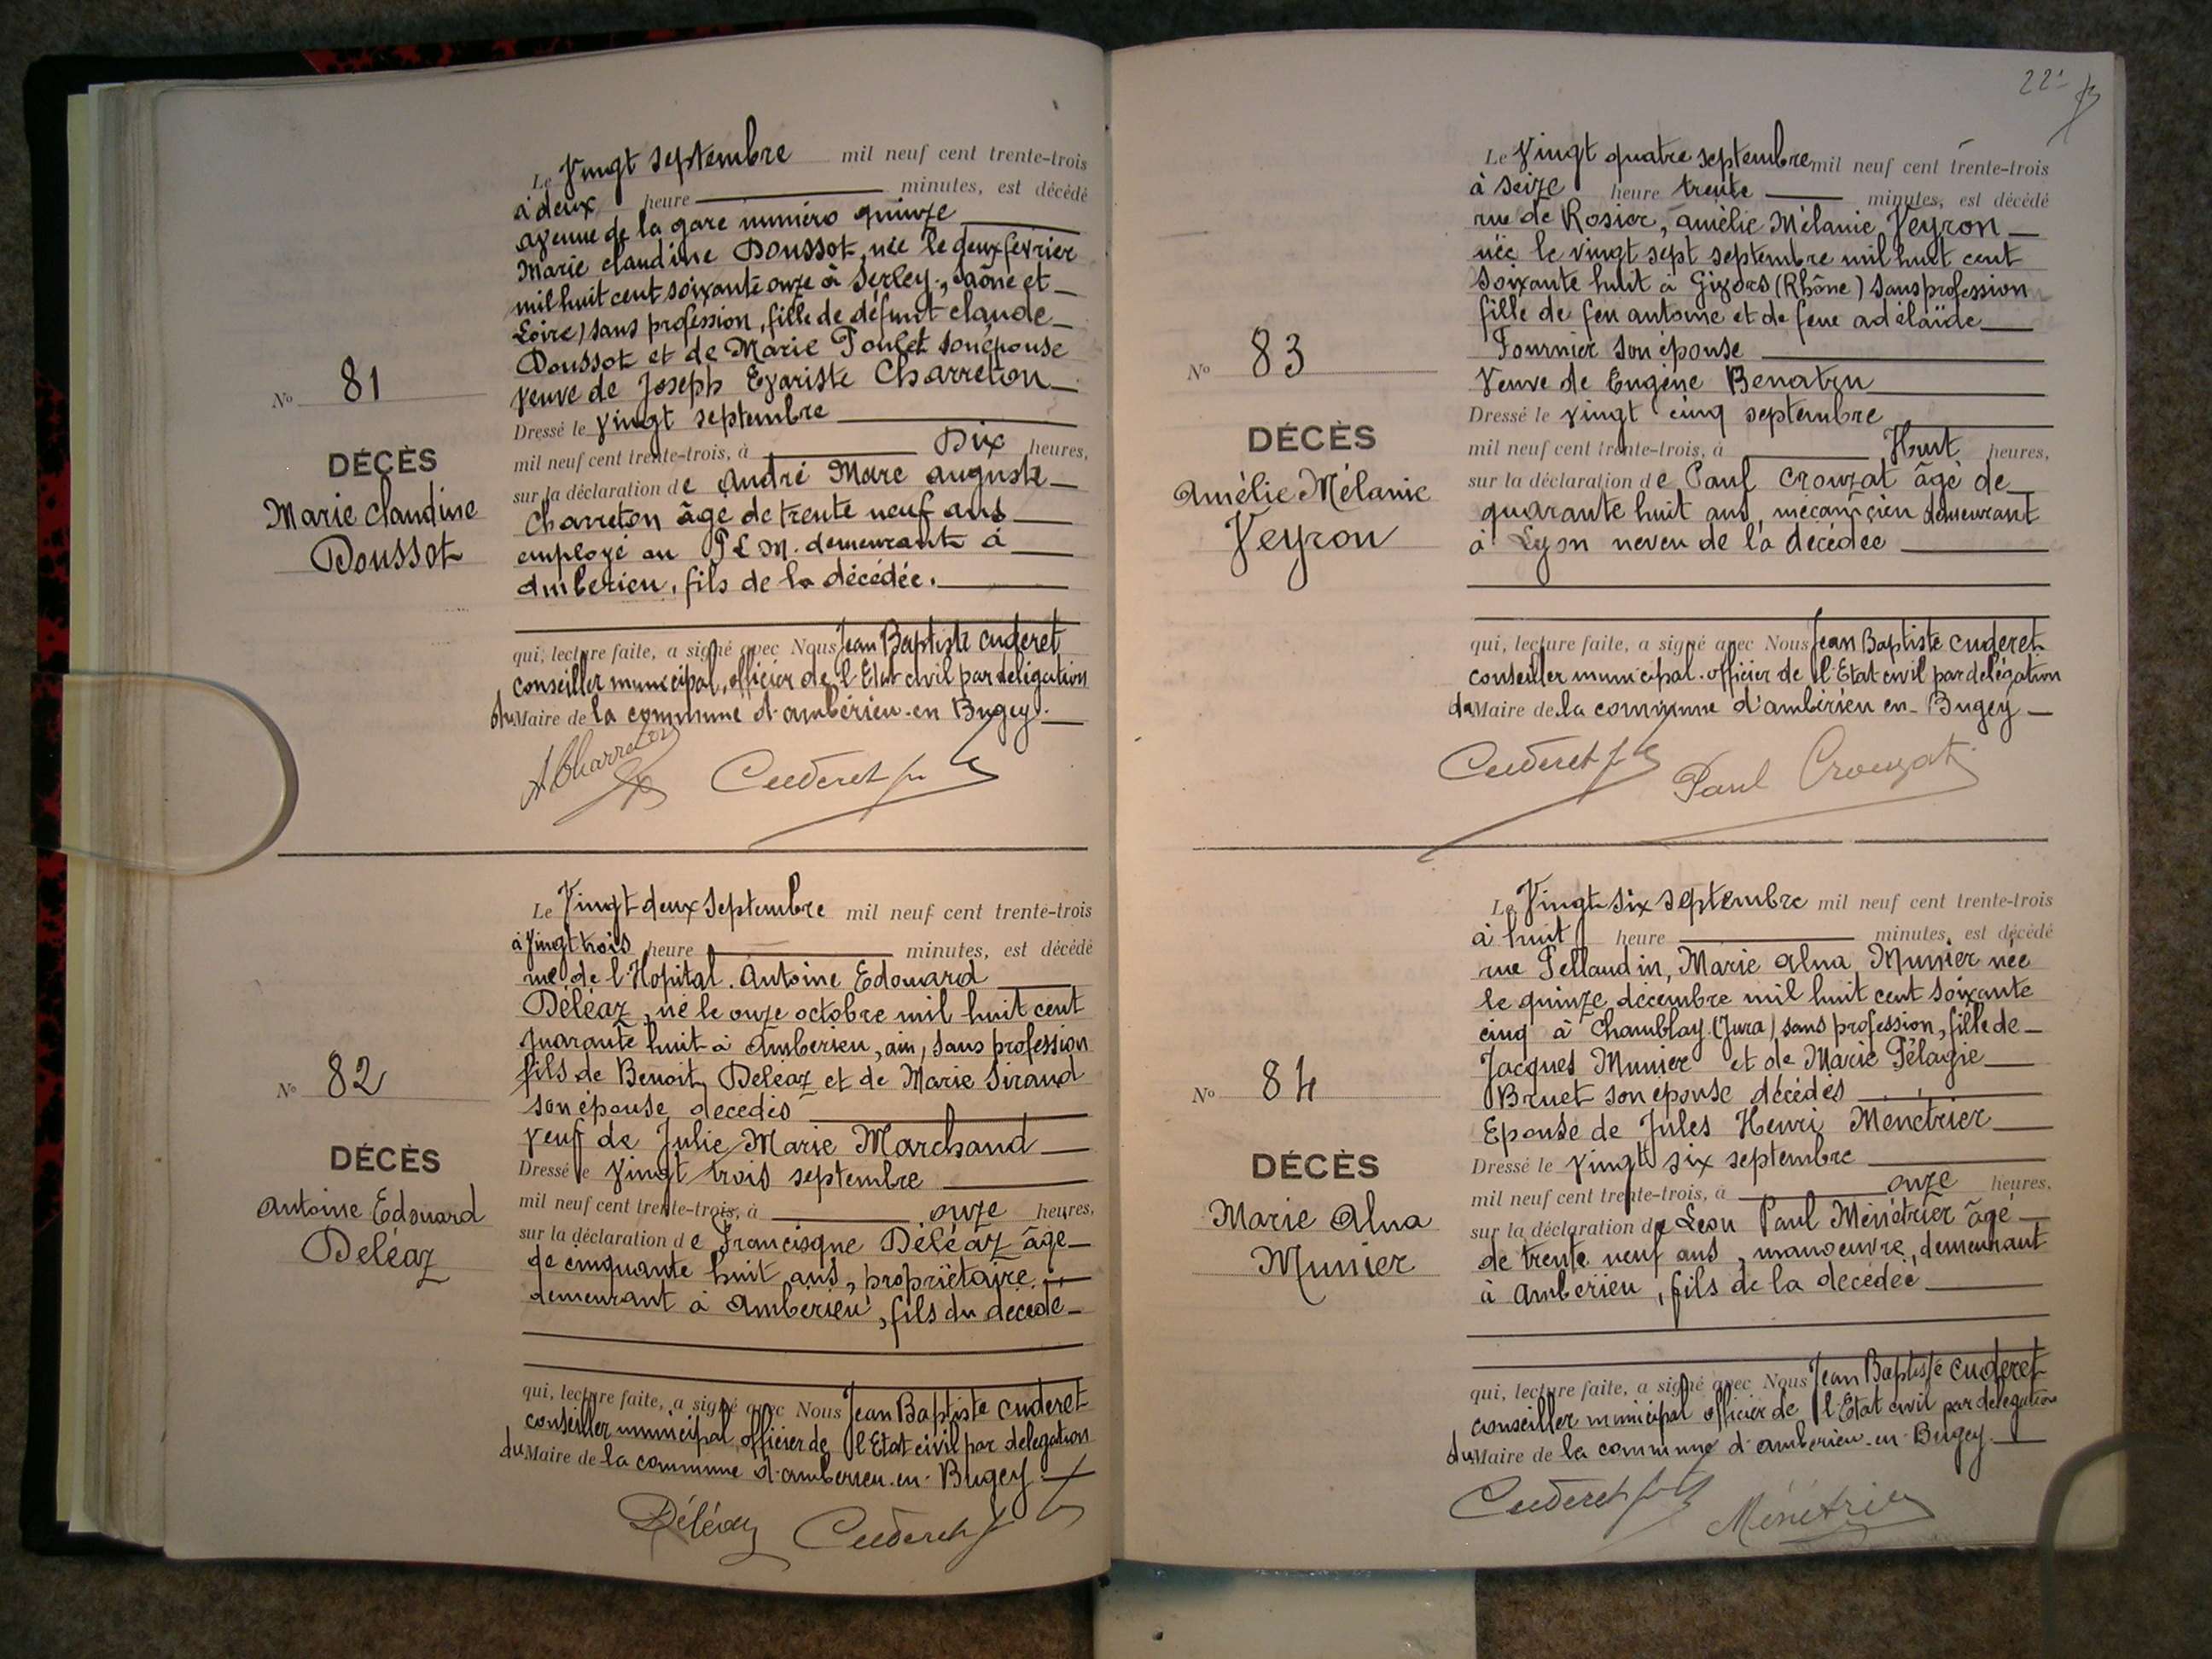 Le Vingt septembre mil neuf cent trente-trois
à deux heure minutes, est décédé
avenue de la gare numéro quinze
Marie claudine Doussot, née le deux février
mil huit cent soixante onze à Serley, Saône et
Loire) sans profession, fille de défunt claude
Doussot et de Marie Poulet son épouse
veuve de Joseph Evariste Charreton
Dressé le vingt septembre
mil neuf cent trente-trois, à Dix heures,
sur la déclaration de André Marc auguste
Charreton âgé de trente neuf ans
employé au P L M. demeurant à
Ambérieu, fils de la décédée.
qui, lecture faite, a signé avec Nous Jean Baptiste Cuderet
conseiller municipal, officier de l'Etat civil par délégation
du Maire de la commune d'ambérieu-en Bugey.
N° 81
DÉCÈS
Marie claudine
Doussot
ACharreton Cuderet
Le Vingt deux septembre mil neuf cent trente-trois
à vingt trois heure minutes, est décédé
rue de l'Hopital. Antoine Edouard
Déléaz, né le onze octobre mil huit cent
quarante huit à Ambérieu, ain, sans profession
fils de Benoit Deléaz et de Marie Siraud
son épouse décédés
veuf de Julie Marie Marchand
Dressé le vingt trois septembre
mil neuf cent trente-trois, à onze heures,
sur la déclaration de Francisque Déléaz âgé
de cinquante huit ans, propriétaire
demeurant à Ambérieu, fils du décédé
qui, lecture faite, a signé avec Nous Jean Baptiste Cuderet
conseiller municipal officier de l'Etat civil par delegation
du Maire de la commune d'amberieu-en-Bugey
N° 82
DÉCÈS
Antoine Edouard
Deléaz
Déléaz Cuderet
Le Vingt quatre septembre mil neuf cent trente-trois
à seize heure trente minutes, est décédé
rue de Rosier, amélie Mélanie Veyron
née le vingt sept septembre mil huit cent
soixante huit à Givors (Rhône) sans profession
fille de feu antoine et de feue adélaïde
Fournier son épouse
Veuve de Eugène Benatru
Dressé le vingt cinq septembre
mil neuf cent trente-trois, à Huit heures,
sur la déclaration de Paul Crouzat âgé de
quarante huit ans, mécanicien demeurant
à Lyon neveu de la décédée
qui, lecture faite, a signé avec Nous Jean Baptiste Cuderet
conseiller municipal. officier de l'Etat civil par delégation
du Maire de la commune d'ambérieu en-Bugey
N° 83
DÉCÈS
Amélie Mélanie
Veyron
Cuderet Paul Crouzat
Le Vingt six septembre mil neuf cent trente-trois
à huit heure minutes, est décédé
rue Pellaudin, Marie alna Munier née
le quinze décembre mil huit cent soixante
cinq à Chamblay (Jura) sans profession, fille de
Jacques Munier et de Marie Pélagie
Bruet son épouse décédés
Epouse de Jules Henri Ménétrier
Dressé le vingt six septembre
mil neuf cent trente-trois, à onze heures,
sur la déclaration de Leon Paul Ménétrier âgé
de trente neuf ans, manoeuvre, demeurant
à Ambérieu, fils de la décédée
qui, lecture faite, a signé avec Nous Jean Baptiste Cuderet
conseiller municipal officier de l'Etat civil par delegation
du Maire de la commune d'amberieu-en-Bugey.
N° 84
DÉCÈS
Marie Alna
Munier
Cuderet Ménétrier